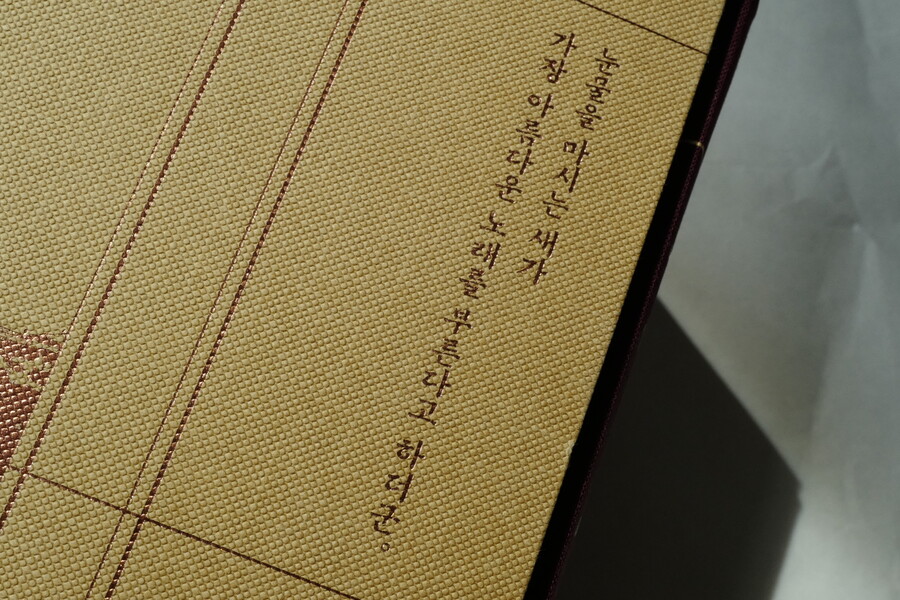 눈물을 마시는 새가
가장 아름다운 노래를 부른다고 하더군。